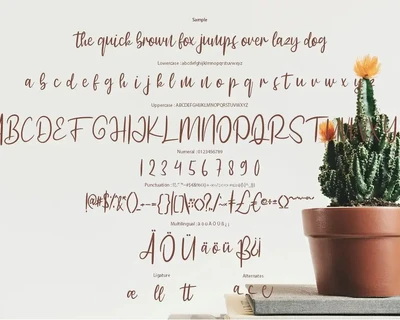 Sample
the quick brown fox jumps over lazy dog
Lowercase : abcdefghijklmnopqrstuvwxyz
a b c d e f g h i j k l m n o p q r s t u v w x y
Uppercase : ABCDEFGHIJKLMNOPQRSTUVWXYZ
ABCDEFGHIJKLMNOPQRST
Numeral : 0123456789
1 2 3 4 5 6 7 8 9 0
Punctuation :
Multilingual : ä ö ü Ä Ö Ü
Ä Ö Ü ä ö ü
Ligature Alternates
æ ll tt a c